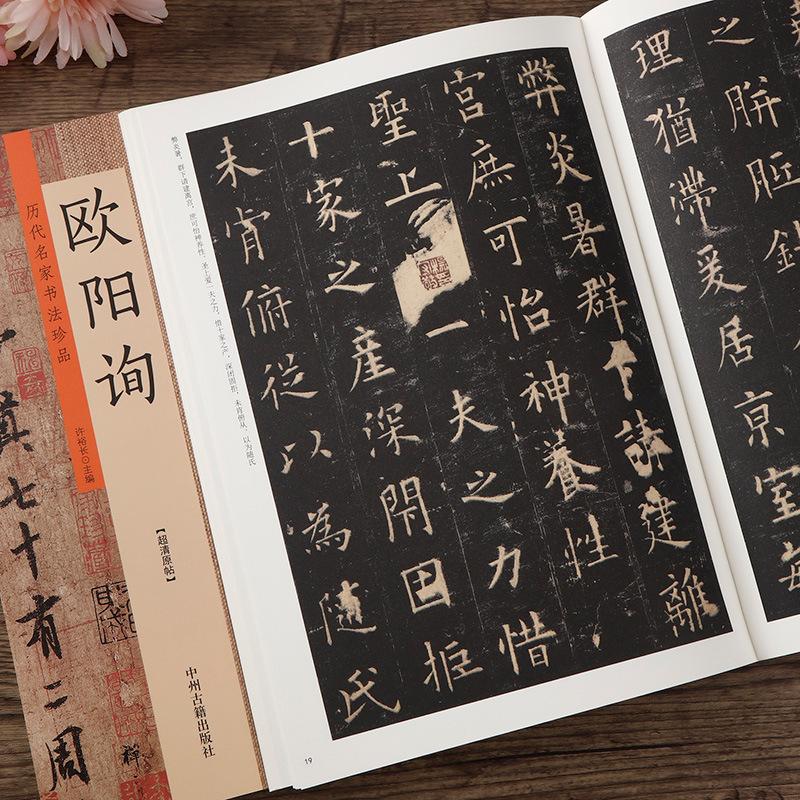 历代名家书法珍品
欧阳询
许裕长◎主编
【超清原帖】
中州古籍出版社
七十有二周
之胼胝針
理猶滯爰居京室每
弊炎暑群下請建離
宮庶可怡神養性
聖上
一夫之力惜
十家之產深閇固拒
未肯俯從以為隨氏
弊炎暑，群下请建离宫，庶可怡神养性。圣上爱一夫之力，惜十家之产，深闭固拒，未肯俯从。以为随氏
19